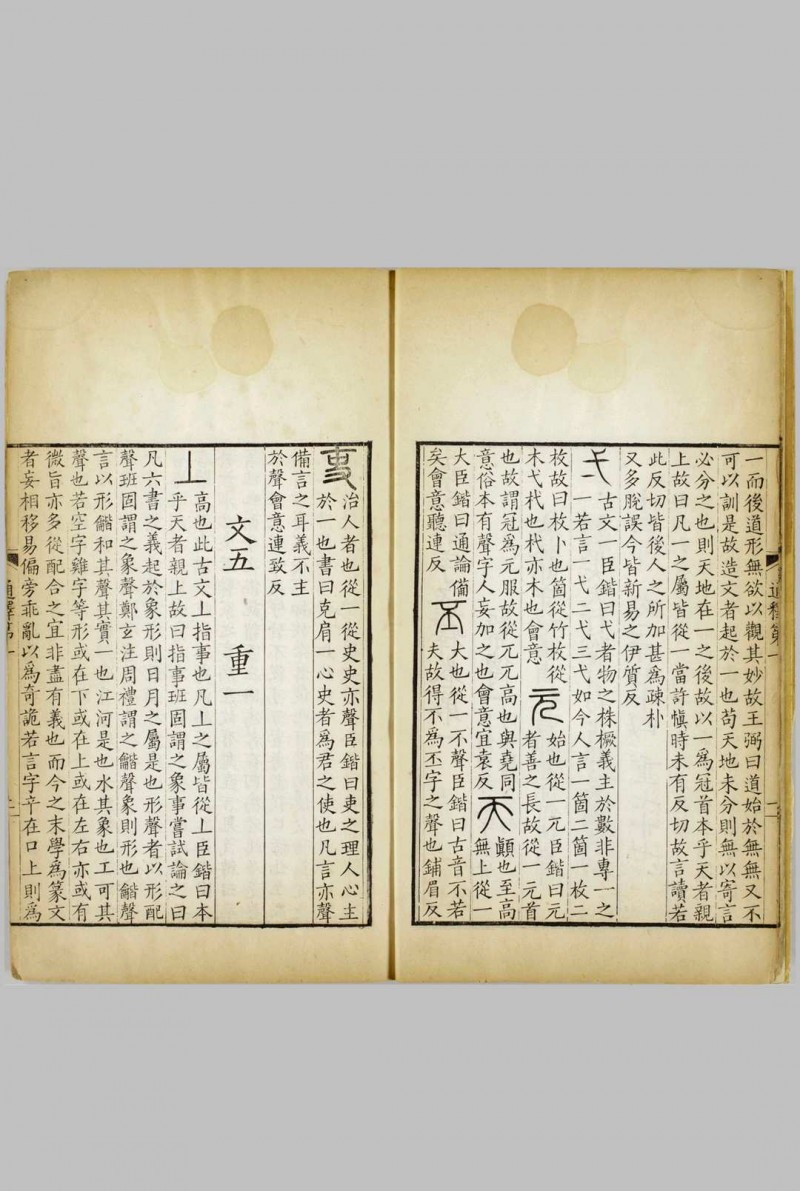 一而後道形無欲以觀其妙故王弼曰道始於無無又不
可以訓是故造文者起於一也苟天地未分則無以寄言
必分之也則天地在一之後故以一爲冠首本乎天者親
上故曰凡一之屬皆從一當許愼時未有反切故言讀若
此反切皆後人之所加甚爲疎朴
又多脫誤今皆新易之伊質反
弌
古文一臣鍇曰弋者物之株橛義主於數非專一之
一若言一弋二弋三弋如今人言一箇二箇一枚二
枚故曰枚卜也箇從竹枚從
木弋杙也杙亦木也會意
元
始也從一兀臣鍇曰元
者善之長故從一元首
也故謂冠爲元服故從兀兀高也與堯同
意俗本有聲字人妄加之也會意宜袁反
天
顚也至高
無上從一
大臣鍇曰通論備
矣會意聽連反
丕
大也從一不聲臣鍇曰古音不若
夫故得不爲丕字之聲也鋪眉反
通釋第一
二
吏
治人者也從一從史史亦聲臣鍇曰吏之理人心主
於一也書曰克肩一心史者爲君之使也凡言亦聲
備言之耳義不主
於聲會意連致反
文五 重一
丄
高也此古文丄指事也凡丄之屬皆從丄臣鍇曰本
乎天者親上故曰指事班固謂之象事嘗試論之曰
凡六書之義起於象形則日月之屬是也形聲者以形配
聲班固謂之象聲鄭玄注周禮謂之龤聲象則形也龤聲
言以形龤和其聲其實一也江河是也水其象也工可其
聲也若空字雞字等形或在下或在上或在左右亦或有
微旨亦多從配合之宜非盡有義也而今之末學爲篆文
者妄相移易偏旁乖亂以爲奇詭若言字辛在口上則爲
通釋第一